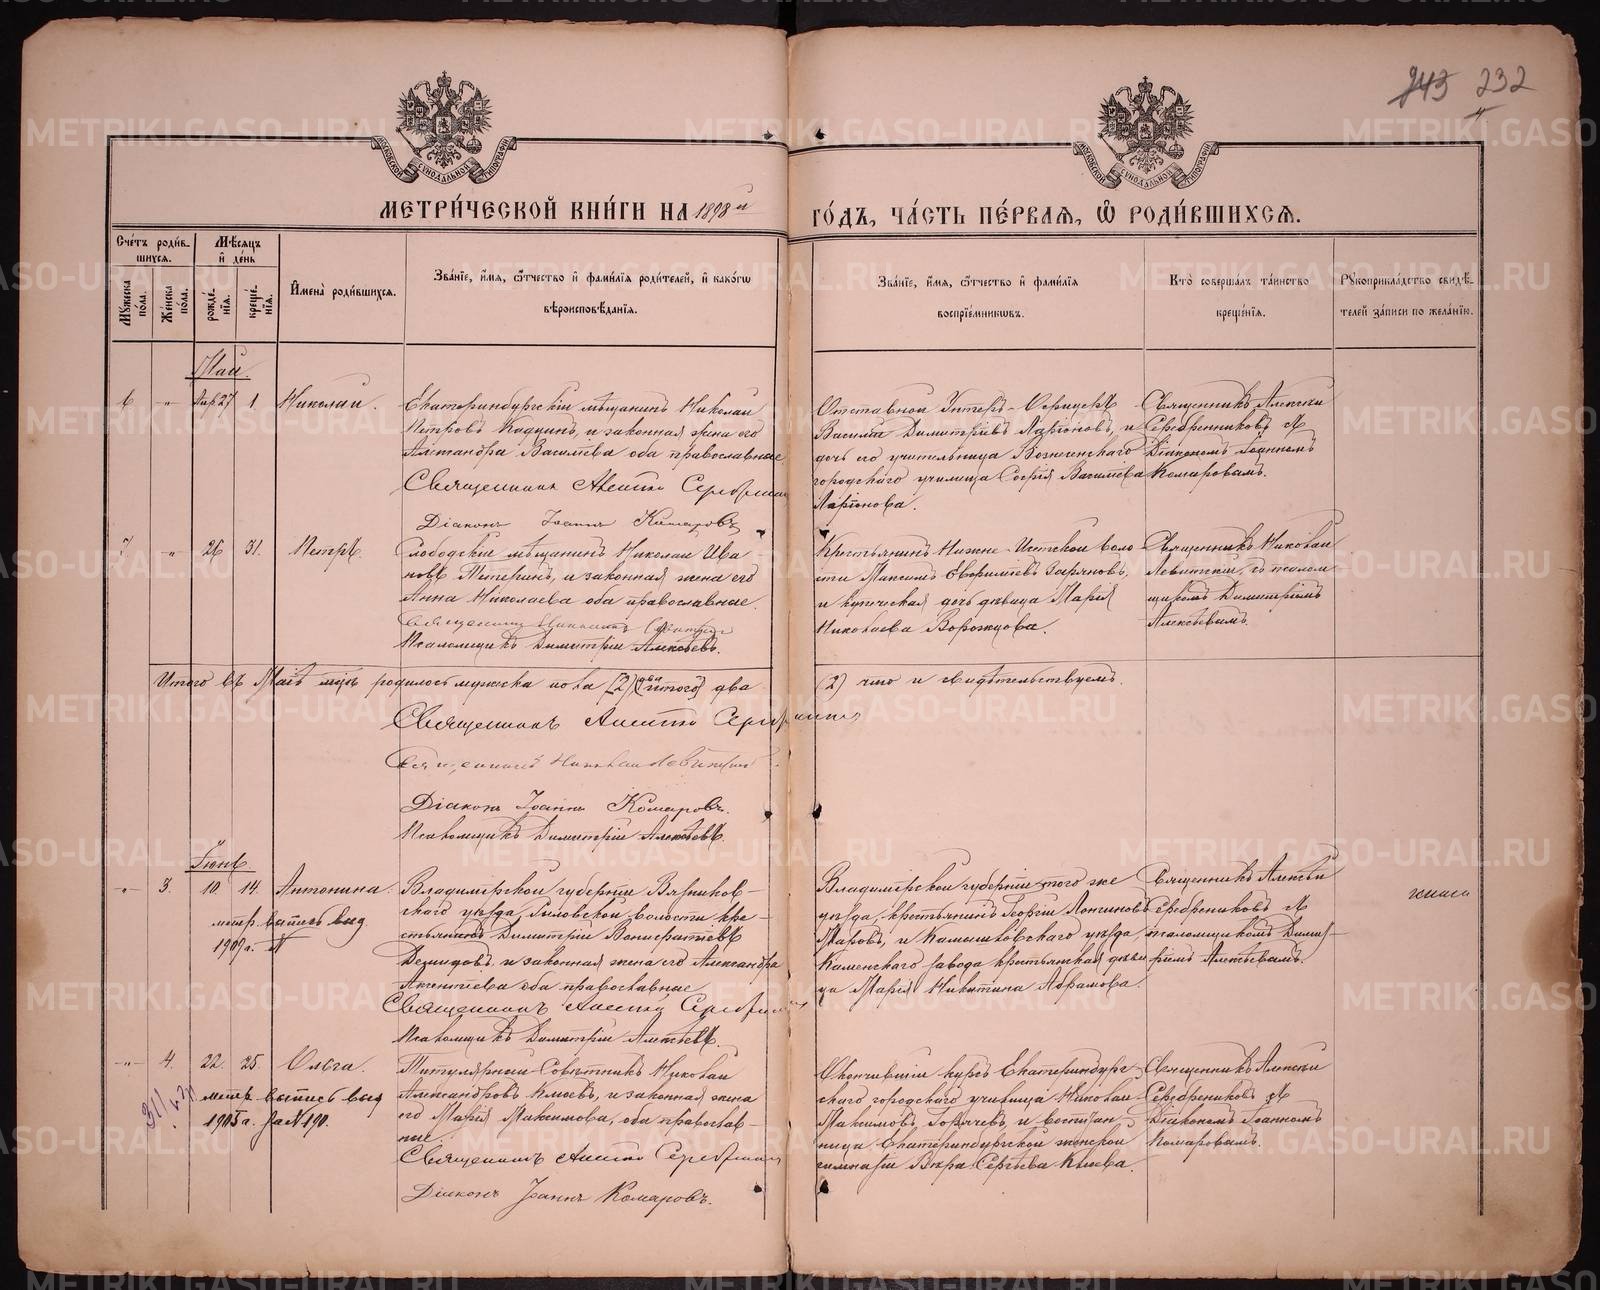 243 232
МОСКОВСКОЙ СѴНОДАЛЬНОЙ ТИПОГРАФІИ
МОСКОВСКОЙ СѴНОДАЛЬНОЙ ТИПОГРАФІИ
МЕТРИ́ЧЕСКОЙ КНИ́ГИ НА 1898й ГО́ДЪ, ЧА́СТЬ ПЕ́РВАЯ, Ѡ РОДИ́ВШИХСЯ.
Счетъ родившихся.
Мужеска пола.
Женска пола.
Мѣсяцъ и день
рожденія.
крещенія.
Имена родившихся.
Званіе, имя, отчество и фамилія родителей, и какогѡ
вѣроисповѣданія.
Званіе, имя, отчество и фамилія
воспріемниковъ.
Кто совершалъ таинство
крещенія.
Рукоприкладство свидѣ-
телей записи по желанію.
Май.
6 „ Апр 27 1. Николай.
Екатеринбургскій мѣщанинъ Николай
Петровъ Кадцинъ, и законная жена его
Александра Василіева оба православные
Священникъ Алексій
Діаконъ Іоаннъ Комаровъ
Отставной Унтеръ-Офицеръ
Василій Димитріевъ Ларіоновъ, и
дочь его учительница Вознесенскаго
городскаго училища Софія Василіева
Ларіонова.
Священникъ Алексій
Серебренниковъ съ
Діакономъ Іоанномъ
Комаровымъ.
7. „ 26 31. Петръ.
Слободскій мѣщанинъ Николай Ива
новъ Тетеринъ, и законная жена его
Анна Николаева оба православные.
Священникъ Николай Левитскій
Псаломщикъ Димитрій Алексѣевъ.
Крестьянинъ Нижне-Исетской воло
сти Максимъ Евфиміевъ Зыряновъ,
и купеческая дочь дѣвица Марія
Николаева Ворожцова.
Священникъ Николай
Левитскій, съ псалом
щикомъ Димитріемъ
Алексѣевымъ.
Итого въ Маѣ мцѣ родилось мужеска пола (2) два (итого) два (2) что и свидѣтельствуемъ.
Священникъ Алексій
Священникъ Николай Левитскій
Діаконъ Іоаннъ Комаровъ.
Псаломщикъ Димитрій Алексѣевъ.
Іюнь
„ 3. 10 14. Антонина.
метр. выпись выд.
1909 г.
Владимірской губерніи Вязников-
скаго уѣзда, волости кре-
стьянинъ Димитрій
Демидовъ, и законная жена его Александра
оба православные
Священникъ Алексій
Псаломщикъ Димитрій Алексѣевъ.
Владимірской губерніи того же
уѣзда, крестьянинъ Георгій Лонгиновъ
Маровъ, и Камышловскаго уѣзда,
Каменскаго завода крестьянская дѣви
ца Марія Никитина Абрамова.
Священникъ Алексѣй
Серебренниковъ съ
псаломщикомъ Димит-
ріемъ Алексѣевымъ.
„ 4. 22. 25. Ольга.
метр. выпись выд
1905 г. за № 190.
Титулярный Совѣтникъ Николай
Александровъ Клыевъ, и законная жена
его Марія Максимова, оба православ-
ные
Священникъ Алексій
Діаконъ Іоаннъ Комаровъ.
Окончившій курсъ Екатеринбург-
скаго городскаго училища Николай
Максимовъ Горячевъ, и воспитан
ница Екатеринбургской женской
гимназіи Вѣра Сергѣева Клыева.
Священникъ Алексій
Серебренниковъ съ
Діакономъ Іоанномъ
Комаровымъ.
METRIKI.GASO-URAL.RU